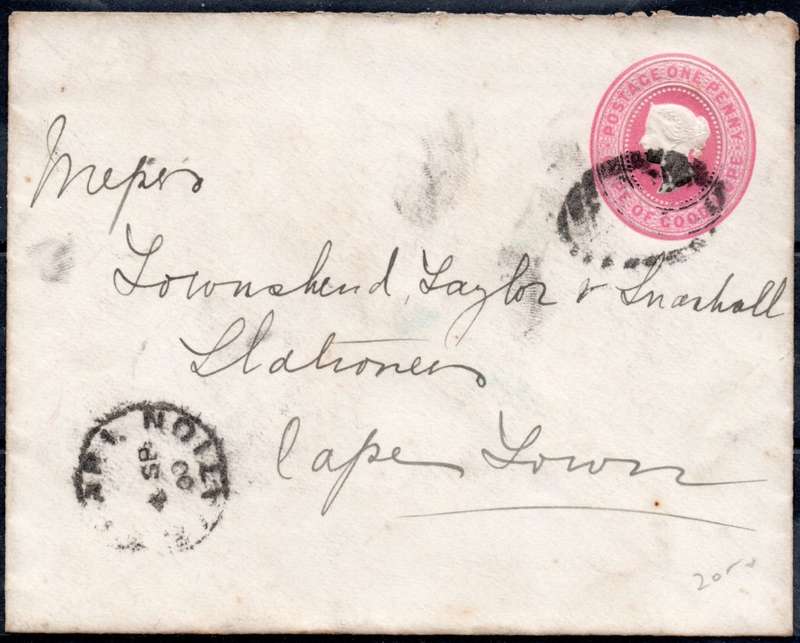 POSTAGE ONE PENNY
OF GOOD
Messrs
Townshend, Taylor & Snashall
Stationers
Cape Town
SP
00